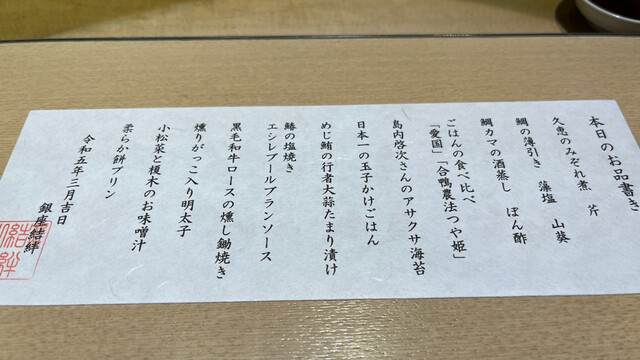 本日のお品書き
久恵のみぞれ煮 芹
鯛の薄引き 藻塩 山葵
鯛カマの酒蒸し ぽん酢
ごはんの食べ比べ
「愛国」「合鴨農法つや姫」
島内啓次さんのアサクサ海苔
日本一の玉子かけごはん
めじ鮪の行者大蒜たまり漬け
鰆の塩焼き
エシレブールブランソース
黒毛和牛ロースの燻し鋤焼き
燻りがっこ入り明太子
小松菜と榎木のお味噌汁
柔らか餅プリン
令和五年三月吉日
銀座結絆